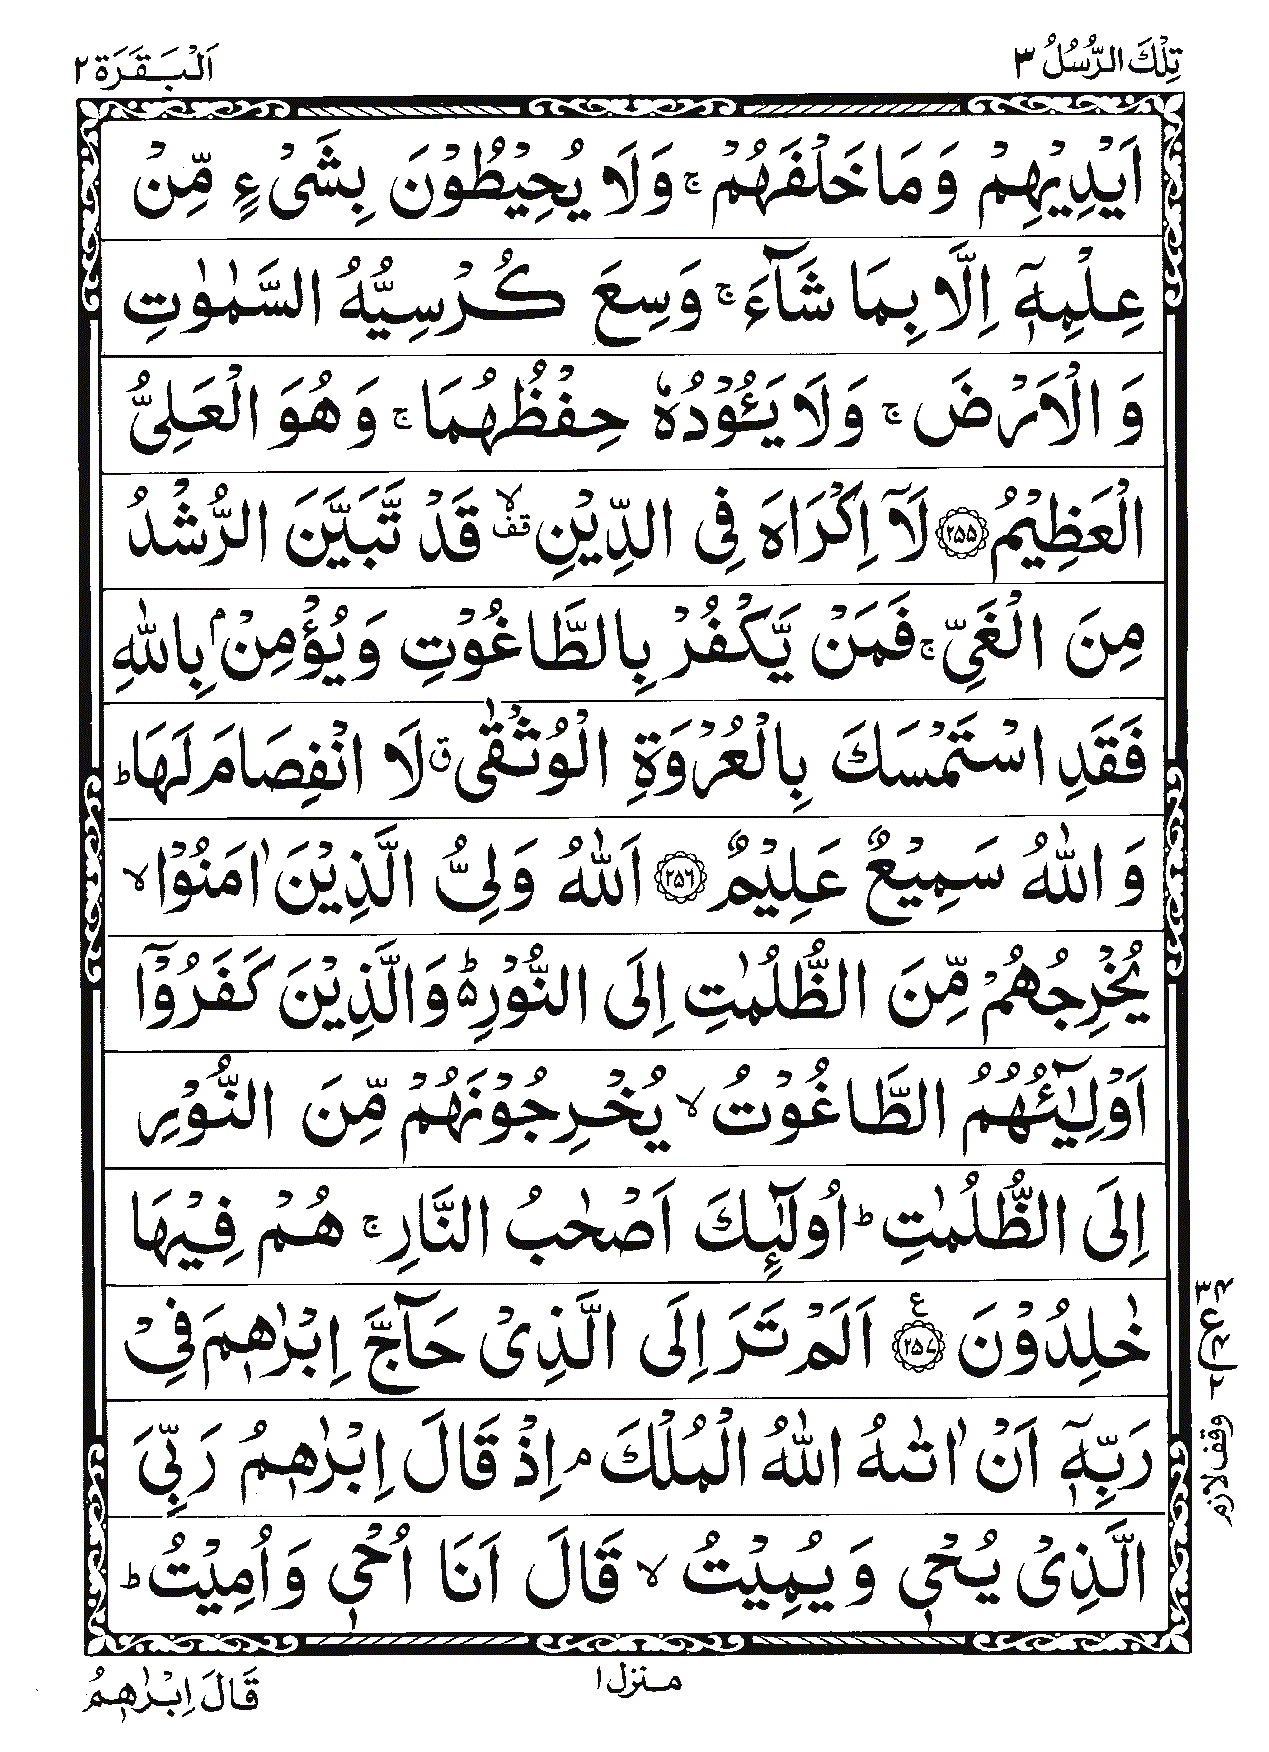 تِلْكَ الرُّسُلُ ٣
اَلْبَقَرَة ٢
اَيْدِيْهِمْ وَمَا خَلْفَهُمْ ۚ وَلَا يُحِيْطُوْنَ بِشَیْءٍ مِّنْ
عِلْمِهٖٓ اِلَّا بِمَا شَآءَ ۚ وَسِعَ كُرْسِيُّهُ السَّمٰوٰتِ
وَ الْاَرْضَ ۚ وَلَا يَـُٔوْدُهٗ حِفْظُهُمَا ۚ وَ هُوَ الْعَلِیُّ
الْعَظِيْمُ ﴿٢٥٥﴾ لَآ اِكْرَاهَ فِی الدِّيْنِ ۙ قف قَدْ تَّبَيَّنَ الرُّشْدُ
مِنَ الْغَیِّ ۚ فَمَنْ يَّكْفُرْ بِالطَّاغُوْتِ وَ يُؤْمِنْۢ بِاللّٰهِ
فَقَدِ اسْتَمْسَكَ بِالْعُرْوَةِ الْوُثْقٰی ق لَا انْفِصَامَ لَهَا ؕ
وَ اللّٰهُ سَمِيْعٌ عَلِيْمٌ ﴿٢٥٦﴾ اَللّٰهُ وَلِیُّ الَّذِيْنَ اٰمَنُوْا ۙ
يُخْرِجُهُمْ مِّنَ الظُّلُمٰتِ اِلَی النُّوْرِ ؕ۬ وَالَّذِيْنَ كَفَرُوْٓا
اَوْلِيٰٓـُٔهُمُ الطَّاغُوْتُ ۙ يُخْرِجُوْنَهُمْ مِّنَ النُّوْرِ
اِلَی الظُّلُمٰتِ ؕ اُولٰٓئِكَ اَصْحٰبُ النَّارِ ۚ هُمْ فِيْهَا
خٰلِدُوْنَ ﴿٢٥٧﴾ ع اَلَمْ تَرَ اِلَی الَّذِیْ حَآجَّ اِبْرٰهٖمَ فِیْ
رَبِّهٖٓ اَنْ اٰتٰىهُ اللّٰهُ الْمُلْكَ ۘ اِذْ قَالَ اِبْرٰهٖمُ رَبِّیَ
الَّذِیْ يُحْیٖ وَ يُمِيْتُ ۙ قَالَ اَنَا اُحْیٖ وَ اُمِيْتُ ؕ
ع
وقف لازم
منزل ١
قَالَ اِبْرٰهٖمُ